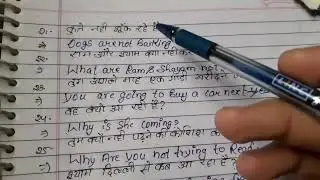 21. कुत्ते नहीं भौंक रहे हैं
⇒ Dogs are not Barking
22. राम और श्याम क्या नहीं कर
⇒ What are Ram & Shayam not
23. तुम अगले साल एक गाड़ी खरीदने
⇒ You are going to Buy a car next year
24. वह क्यों आ रही है?
⇒ Why is She Coming?
25. तुम क्यों नहीं पढ़ने की कोशिश कर
⇒ Why Are you not trying to Read
श्याम दिल्ली से कब आ रहा है?